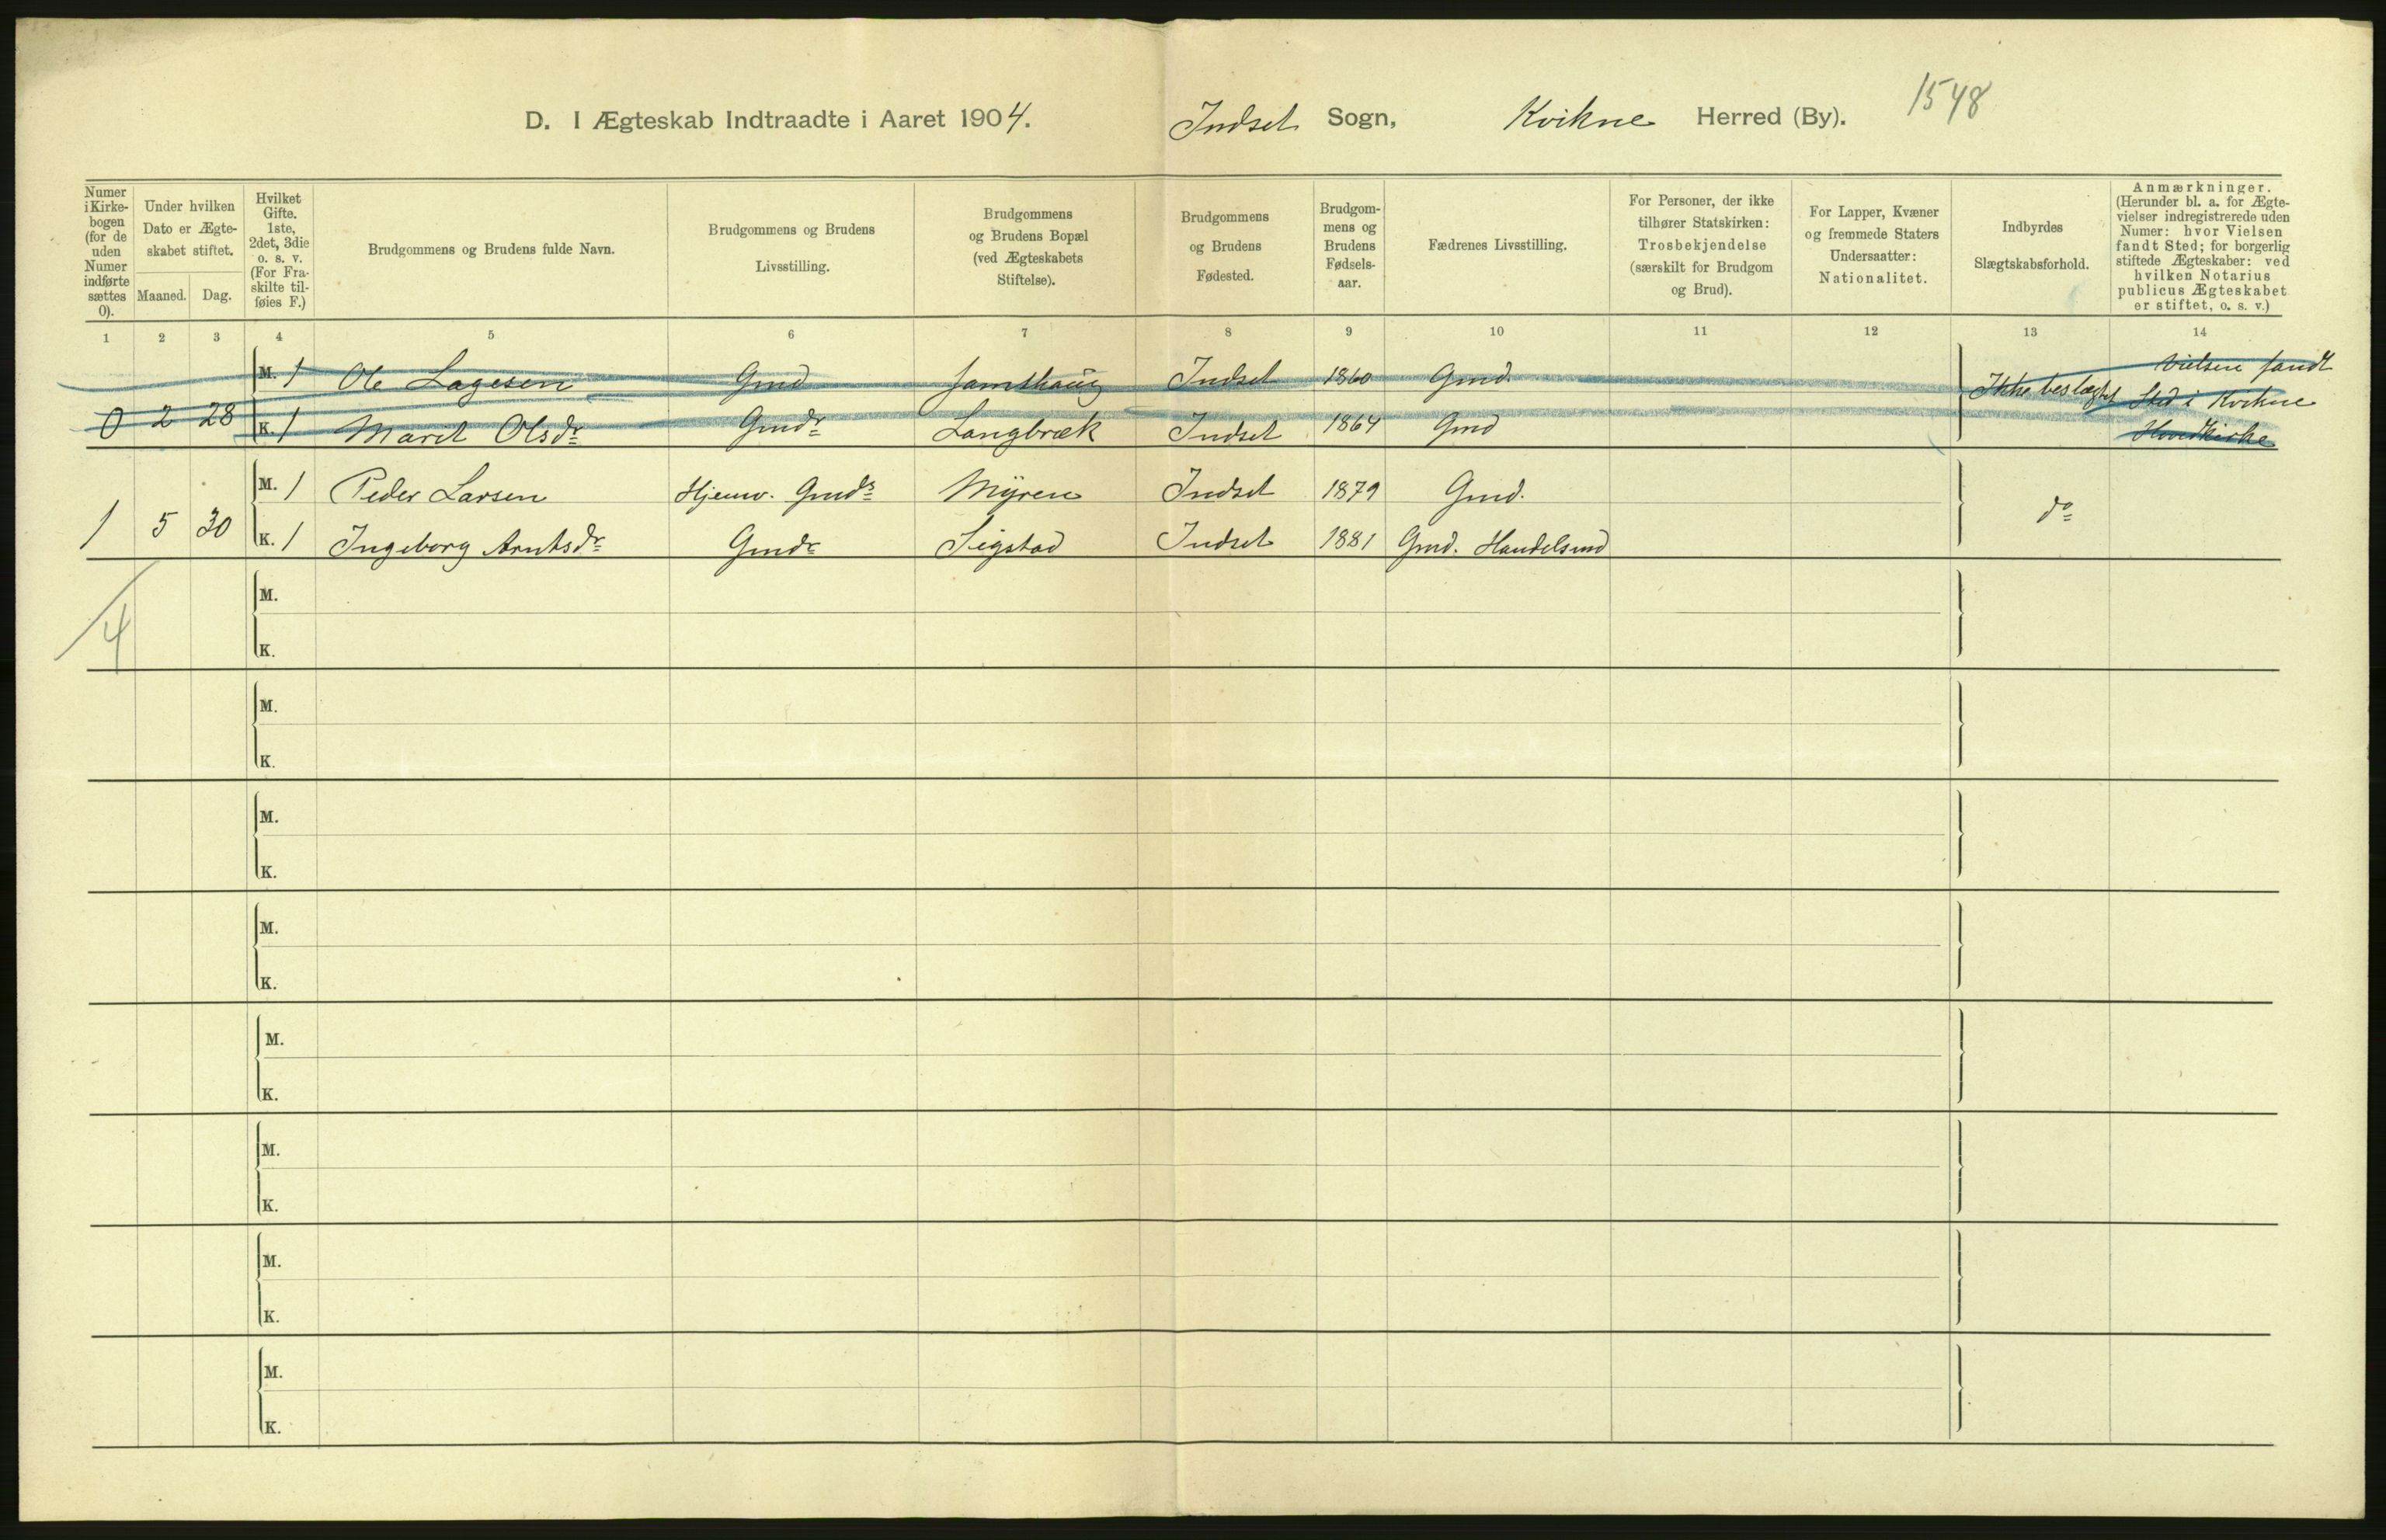 D. I Ægteskab Indtraadte i Aaret 1904. Indset Sogn, Kvikne Herred (By). 1548
Numer i Kirkebogen (for de uden Numer indførte sættes 0).
Under hvilken Dato er Ægteskabet stiftet.
Maaned. Dag.
Hvilket Gifte. 1ste, 2det, 3die o. s. v. (For Fraskilte tilføies F.)
Brudgommens og Brudens fulde Navn.
Brudgommens og Brudens Livsstilling.
Brudgommens og Brudens Bopæl (ved Ægteskabets Stiftelse).
Brudgommens og Brudens Fødested.
Brudgommens og Brudens Fødselsaar.
Fædrenes Livsstilling.
For Personer, der ikke tilhører Statskirken: Trosbekjendelse (særskilt for Brudgom og Brud).
For Lapper, Kvæner og fremmede Staters Undersaatter: Nationalitet.
Indbyrdes Slægtskabsforhold.
Anmærkninger. (Herunder bl. a. for Ægtevielser indregistrerede uden Numer: hvor Vielsen fandt Sted; for borgerlig stiftede Ægteskaber: ved hvilken Notarius publicus Ægteskabet er stiftet, o. s. v.)
1 2 3 4 5 6 7 8 9 10 11 12 13 14
M. 1 Ole Lagesen Gmd Samshaug Indset 1860 Gmd. Ikke beslægtet Vielsen fandt
0 2 28 K. 1 Marit Olsdr Gmdr Langbræk Indset 1864 Gmd Sted i Kvikne
Hovedkirke
M. 1 Peder Larsen Hjemv. Gmds Myren Indset 1879 Gmd. do
1 5 30 K. 1 Ingeborg Arntsdr Gmdr Sigstad Indset 1881 Gmd. Handelsmd
4
M.
K.
M.
K.
M.
K.
M.
K.
M.
K.
M.
K.
M.
K.
M.
K.